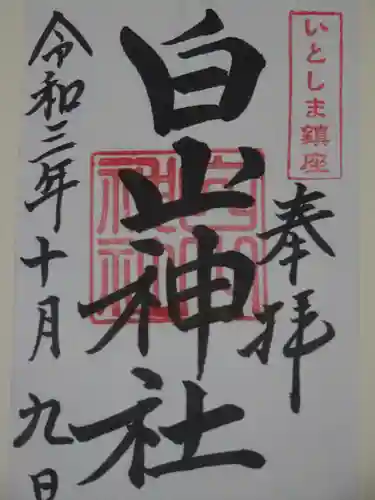 いとしま鎮座
奉拝
白山神社
白山神社
令和三年十月九日